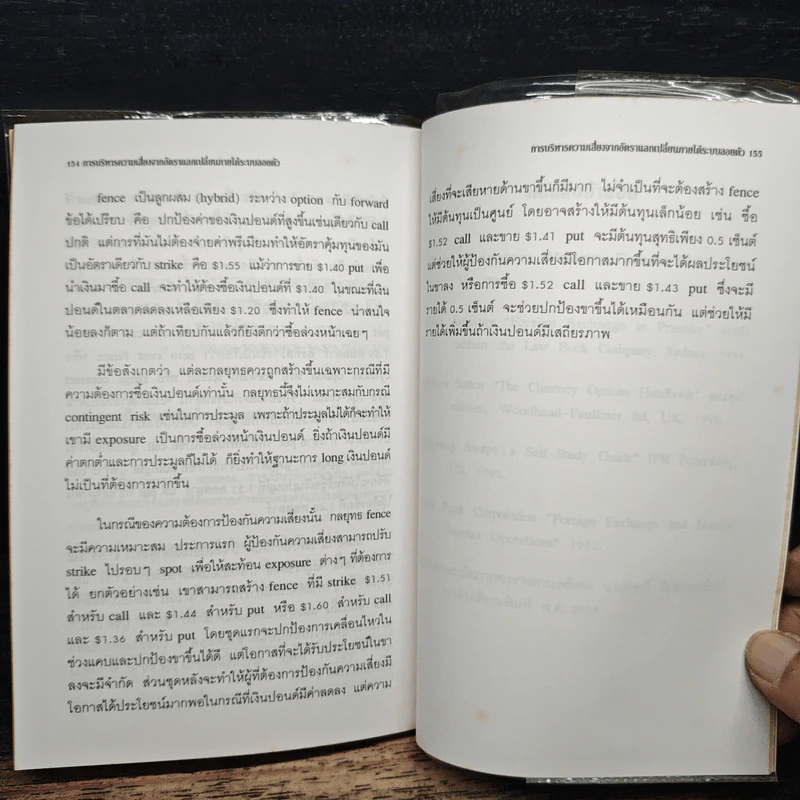 154 การบริหารความเสี่ยงจากอัตราแลกเปลี่ยนภายใต้ระบบลอยตัว
fence เป็นลูกผสม (hybrid) ระหว่าง option กับ forward
ข้อได้เปรียบ คือ ปกป้องค่าของเงินปอนด์ที่สูงขึ้นเช่นเดียวกับ call
ปกติ แต่การที่มันไม่ต้องจ่ายค่าพรีเมียมทำให้อัตราคุ้มทุนของมัน
เป็นอัตราเดียวกับ strike คือ $1.55 แม้ว่าการขาย $1.40 put เพื่อ
นำเงินมาซื้อ call จะทำให้ต้องซื้อเงินปอนด์ที่ $1.40 ในขณะที่เงิน
ปอนด์ในตลาดลดลงเหลือเพียง $1.20 ซึ่งทำให้ fence น่าสนใจ
น้อยลงก็ตาม แต่ถ้าเทียบกันแล้วก็ยังดีกว่าซื้อล่วงหน้าเฉยๆ
มีข้อสังเกตว่า แต่ละกลยุทธควรถูกสร้างขึ้นเฉพาะกรณีที่มี
ความต้องการซื้อเงินปอนด์เท่านั้น กลยุทธนี้จึงไม่เหมาะสมกับกรณี
contingent risk เช่นในการประมูล เพราะถ้าประมูลไม่ได้ก็จะทำให้
เขามี exposure เป็นการซื้อล่วงหน้าเงินปอนด์ ยิ่งถ้าเงินปอนด์มี
ค่าตกต่ำและการประมูลก็ไม่ได้ ก็ยิ่งทำให้ฐานะการ long เงินปอนด์
ไม่เป็นที่ต้องการมากขึ้น
ในกรณีของความต้องการป้องกันความเสี่ยงนั้น กลยุทธ fence
จะมีความเหมาะสม ประการแรก ผู้ป้องกันความเสี่ยงสามารถปรับ
strike ไปรอบๆ spot เพื่อให้สะท้อน exposure ต่างๆ ที่ต้องการ
ได้ ยกตัวอย่างเช่น เขาสามารถสร้าง fence ที่มี strike $1.51
สำหรับ call และ $1.44 สำหรับ put หรือ $1.60 สำหรับ call
และ $1.36 สำหรับ put โดยชุดแรกจะปกป้องการเคลื่อนไหวใน
ช่วงแคบและปกป้องขาขึ้นได้ดี แต่โอกาสที่จะได้รับประโยชน์ในขา
ลงจะมีจำกัด ส่วนชุดหลังจะทำให้ผู้ที่ต้องการป้องกันความเสี่ยงมี
โอกาสได้ประโยชน์มากพอในกรณีที่เงินปอนด์มีค่าลดลง แต่ความ
การบริหารความเสี่ยงจากอัตราแลกเปลี่ยนภายใต้ระบบลอยตัว 155
เสี่ยงที่จะเสียหายด้านขาขึ้นก็มีมาก ไม่จำเป็นที่จะต้องสร้าง fence
ให้มีต้นทุนเป็นศูนย์ โดยอาจสร้างให้มีต้นทุนเล็กน้อย เช่น ซื้อ
$1.52 call และขาย $1.41 put จะมีต้นทุนสุทธิเพียง 0.5 เซ็นต์
แต่ช่วยให้ผู้ป้องกันความเสี่ยงมีโอกาสมากขึ้นที่จะได้ผลประโยชน์
ในขาลง หรือการซื้อ $1.52 call และขาย $1.43 put ซึ่งจะมี
รายได้ 0.5 เซ็นต์ จะช่วยปกป้องขาขึ้นได้เหมือนกัน แต่ช่วยให้มี
รายได้เพิ่มขึ้นถ้าเงินปอนด์มีเสถียรภาพ